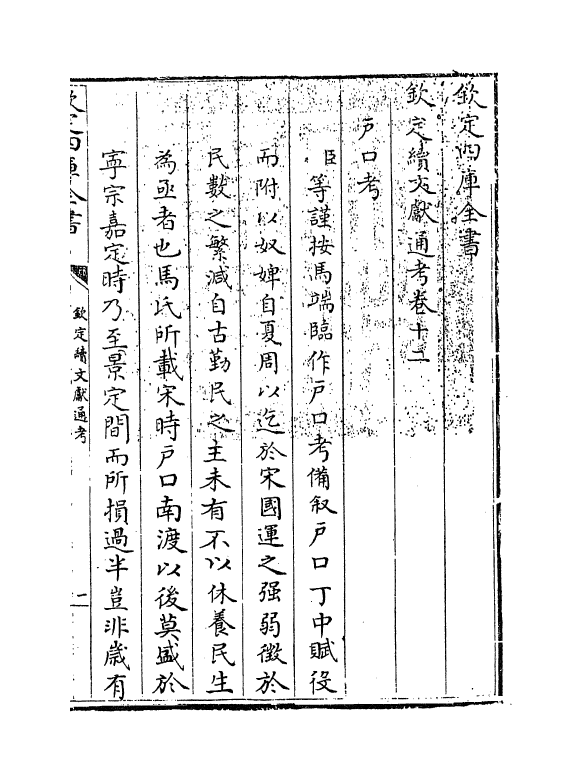 欽定四庫全書
欽定續文獻通考卷十二
戶口考
臣等謹按馬端臨作戶口考備叙戶口丁中賦役
而附以奴婢自夏周以迄於宋國運之强弱徵於
民數之繁減自古勤民之主未有不以休養民生
為亟者也馬氏所載宋時戶口南渡以後莫盛於
寧宗嘉定時乃至景定間而所損過半豈非歲有
欽定四庫全書
欽定續文獻通考
一